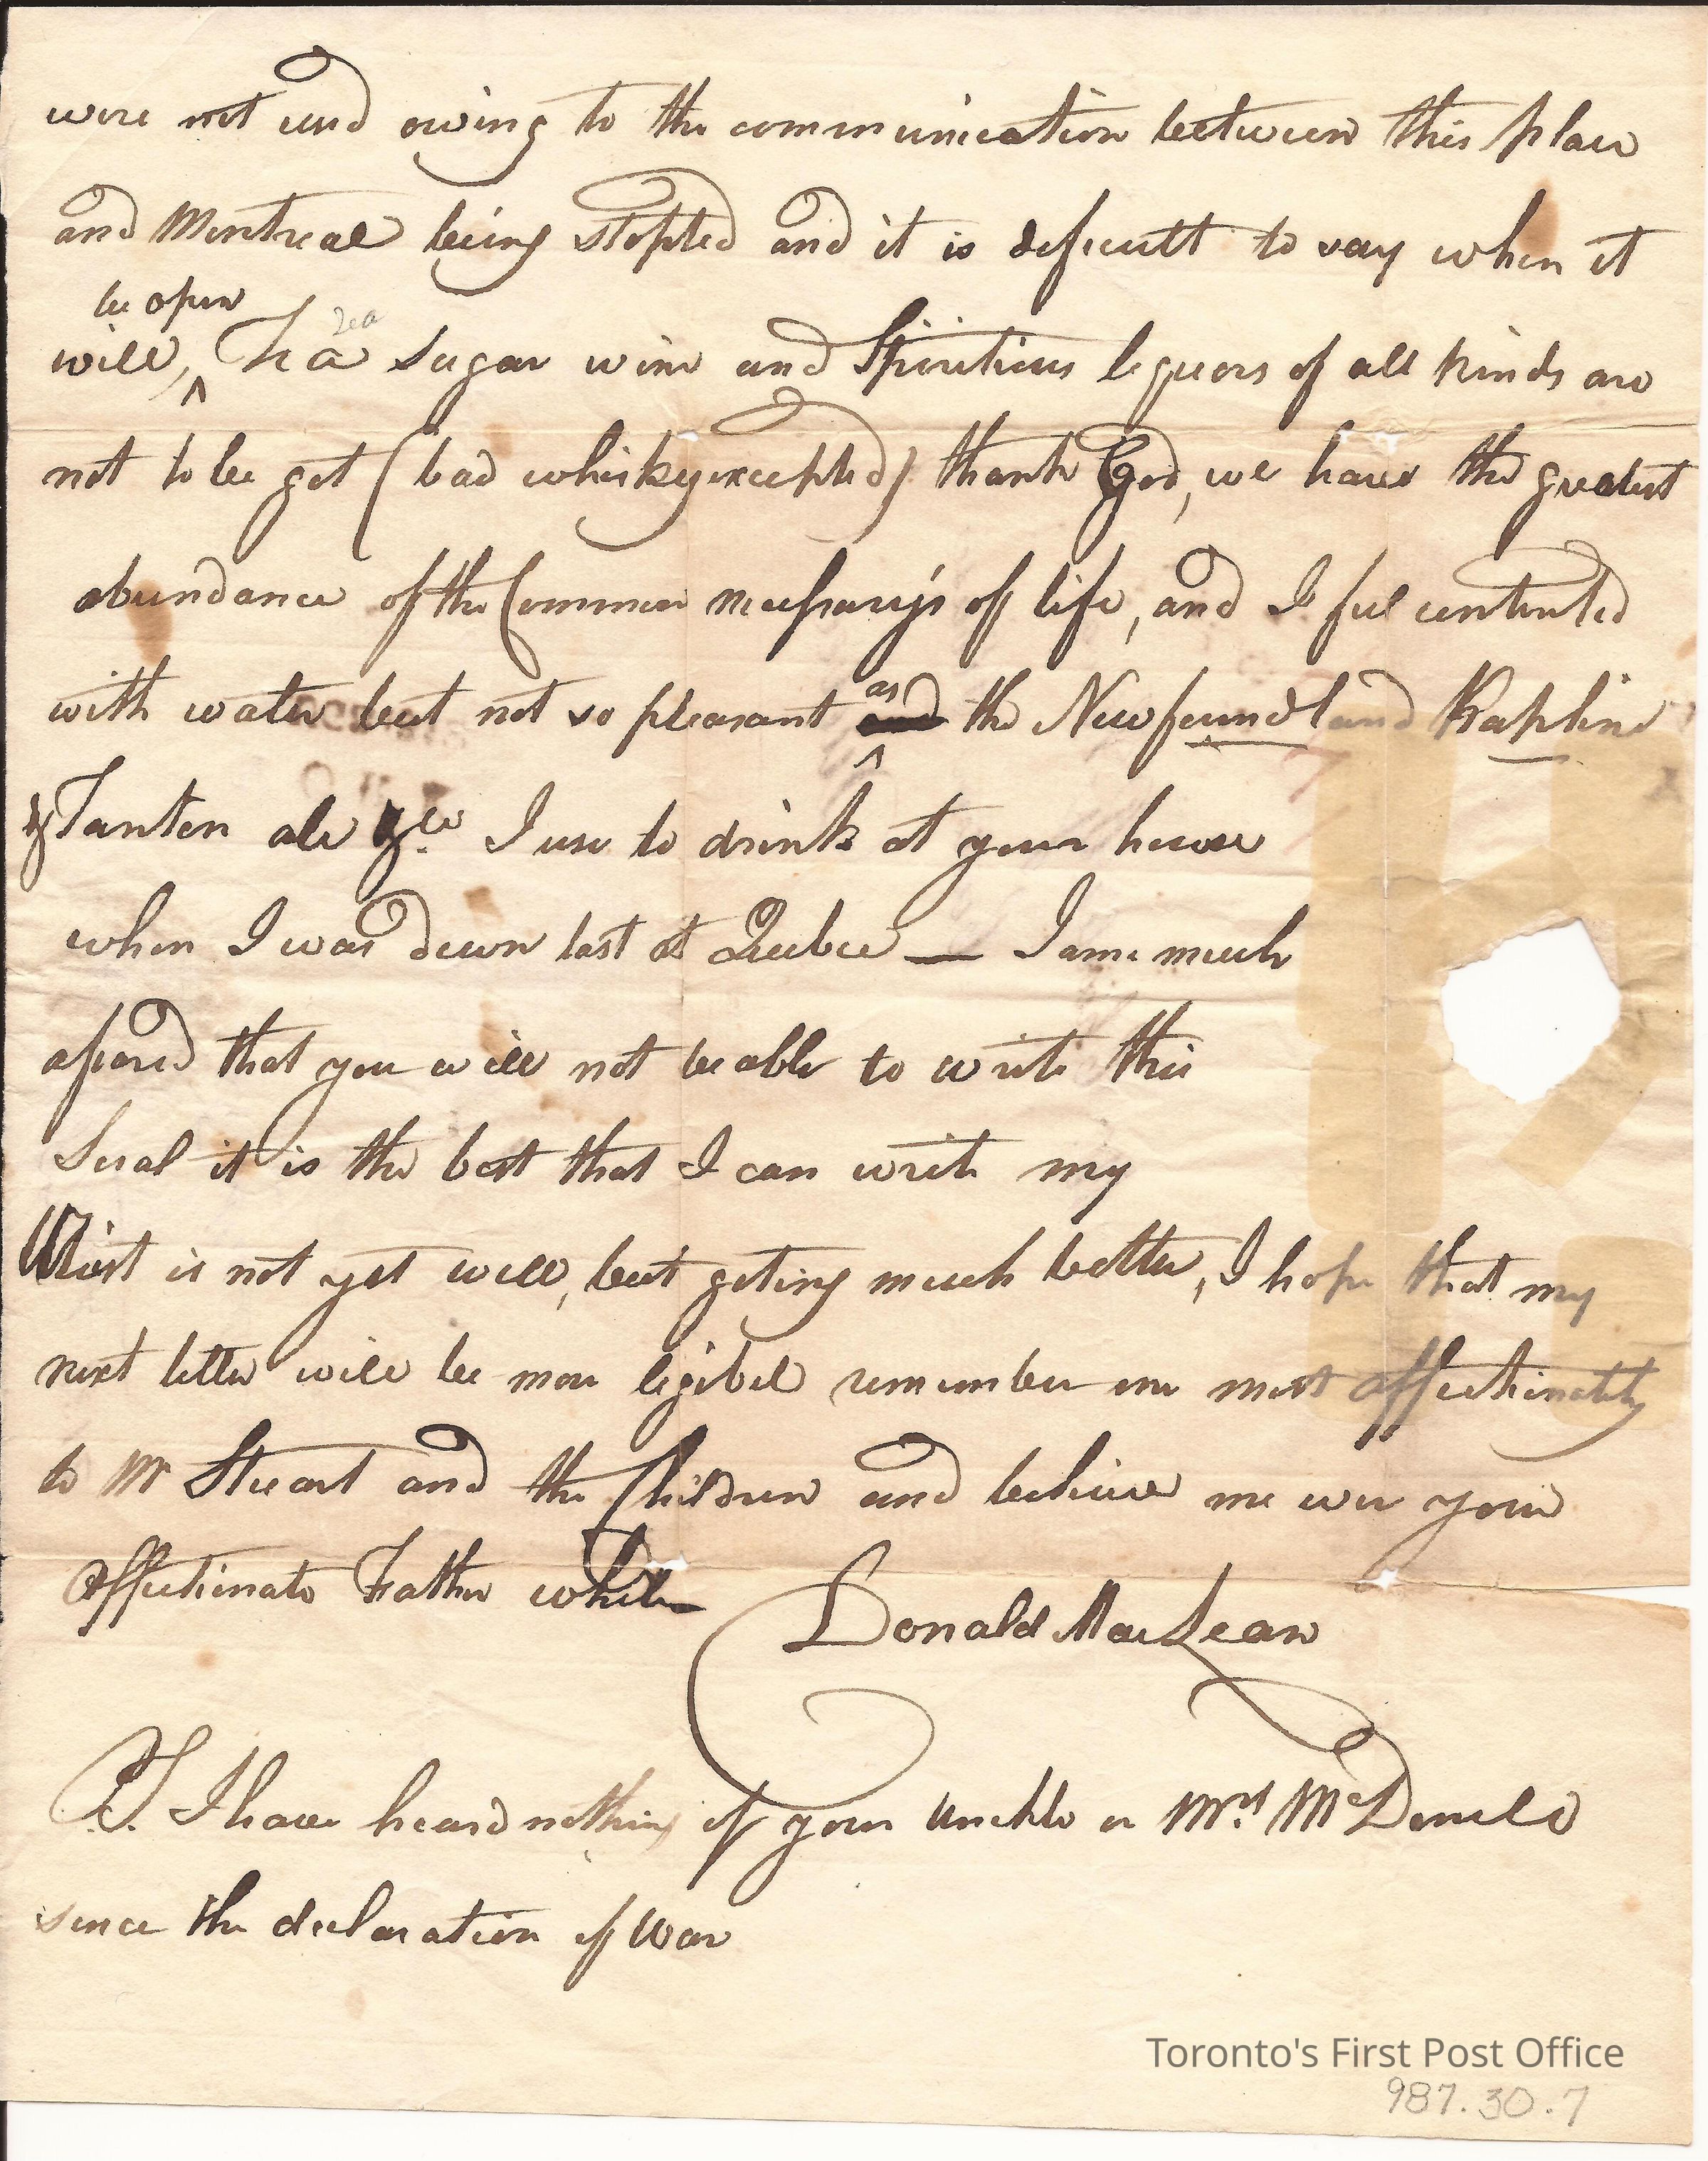 were not and owing to the communication between this place
and Montreal being stopted and it is deficutt to say when it
be open
will ^ Tea sugar wine and Spiritius liquors of all kinds are
Tea
not to be got (bad whisky excepted) thank God, we have the greatest
abundance of the Common necessary's of life, and I feel contented
with water but not so pleasant as the Newfoundland Kapline
& Tanton ale I use to drink at your house
when I was down last at Quebec — I am much
afeared that you will not be able to write this
it is the best that I can write my
Wrist is not yet well, but geting much better, I hope that my
next letter will be more legibel remember me most affectinately
to Mr Stuart and the Children and believe me ever your
affectinate Father while
Donald MacLean
P.S. I have heard nothing of your Unckle or Mrs. McDonell
since the declaration of War
Toronto's First Post Office
987.30.7